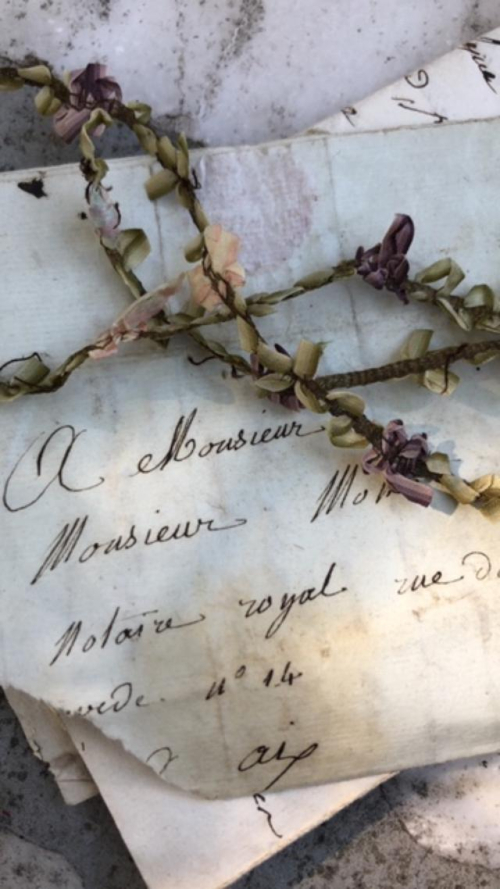 A Monsieur
Monsieur
Notaire royal rue
n° 14
aix